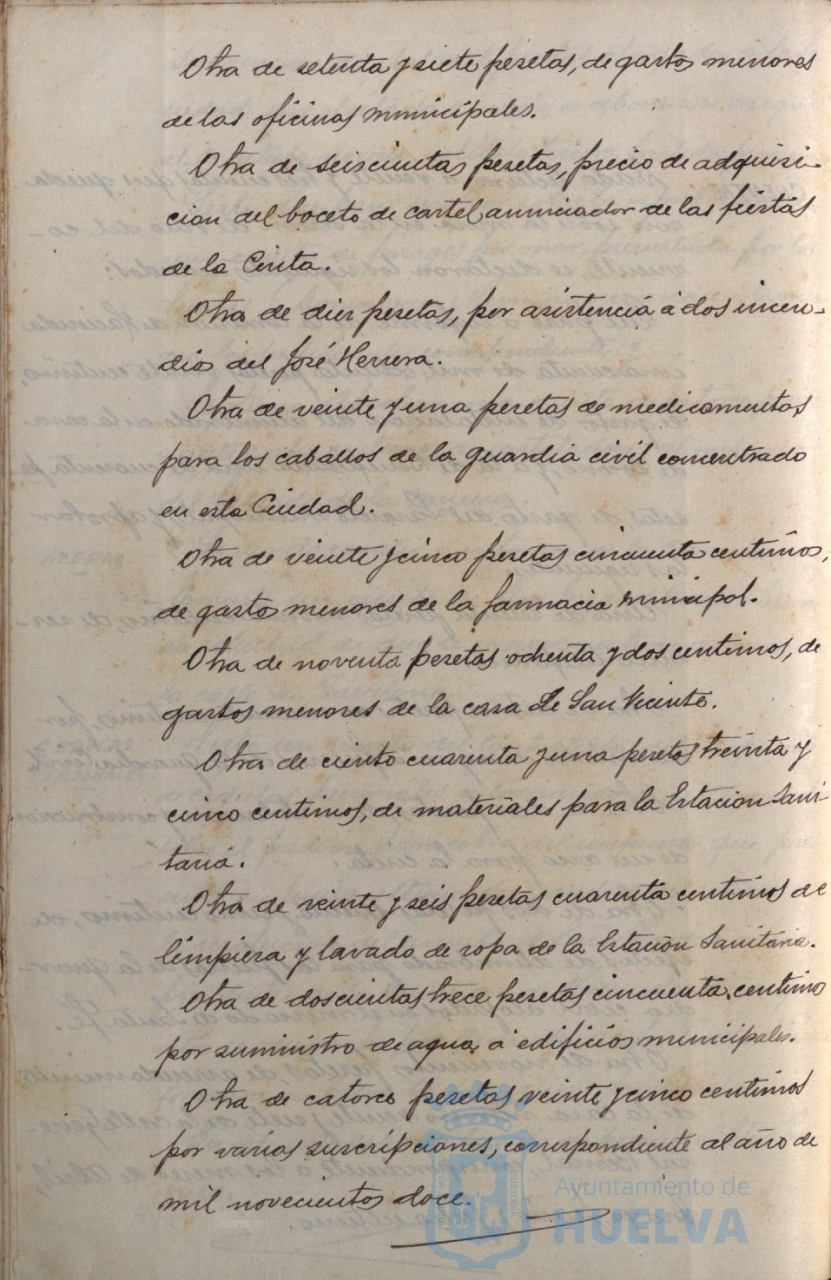 Otra de setenta y siete pesetas, de gastos menores
de las oficinas municipales.
Otra de seiscientas pesetas, precio de adquisi-
cion del boceto de cartel anunciador de las fiestas
de la Cinta.
Otra de diez pesetas, por asistencia á dos incen-
dios del José Herrera.
Otra de veinte y una pesetas de medicamentos
para los caballos de la guardia civil concentrado
en esta Ciudad.
Otra de veinte y cinco pesetas cincuenta centimos,
de gastos menores de la farmacia municipal.
Otra de noventa pesetas ochenta y dos centimos, de
gastos menores de la casa de San Vicente.
Otra de ciento cuarenta y una pesetas treinta y
cinco centimos, de materiales para la Estacion Sani
taria.
Otra de veinte y seis pesetas cuarenta centimos de
limpieza y lavado de ropa de la Estación Sanitaria.
Otra de doscientas trece pesetas cincuenta centimos
por suministro de agua á edificios municipales.
Otra de catorce pesetas veinte y cinco centimos
por varias suscripciones, correspondiente al año de
mil novecientos doce.
Ayuntamiento de
HUELVA